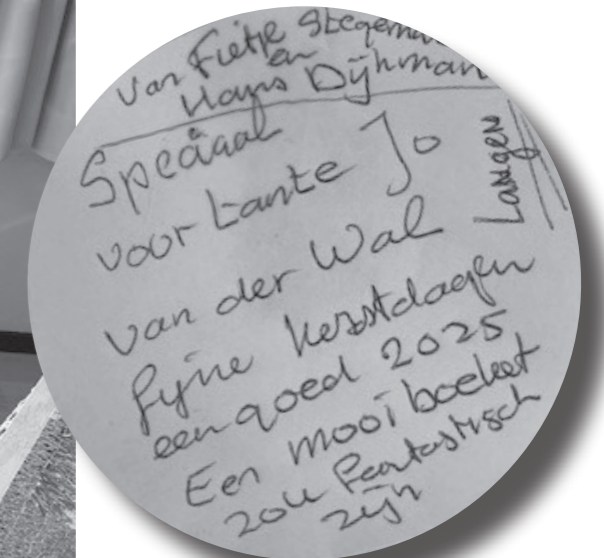 Van Fietje Stegema
en
Hans Dijkman
Speciaal
voor tante Jo
van der Wal
Langen
fijne kerstdagen
een goed 2025
Een mooi boeket
zou fantastisch
zijn